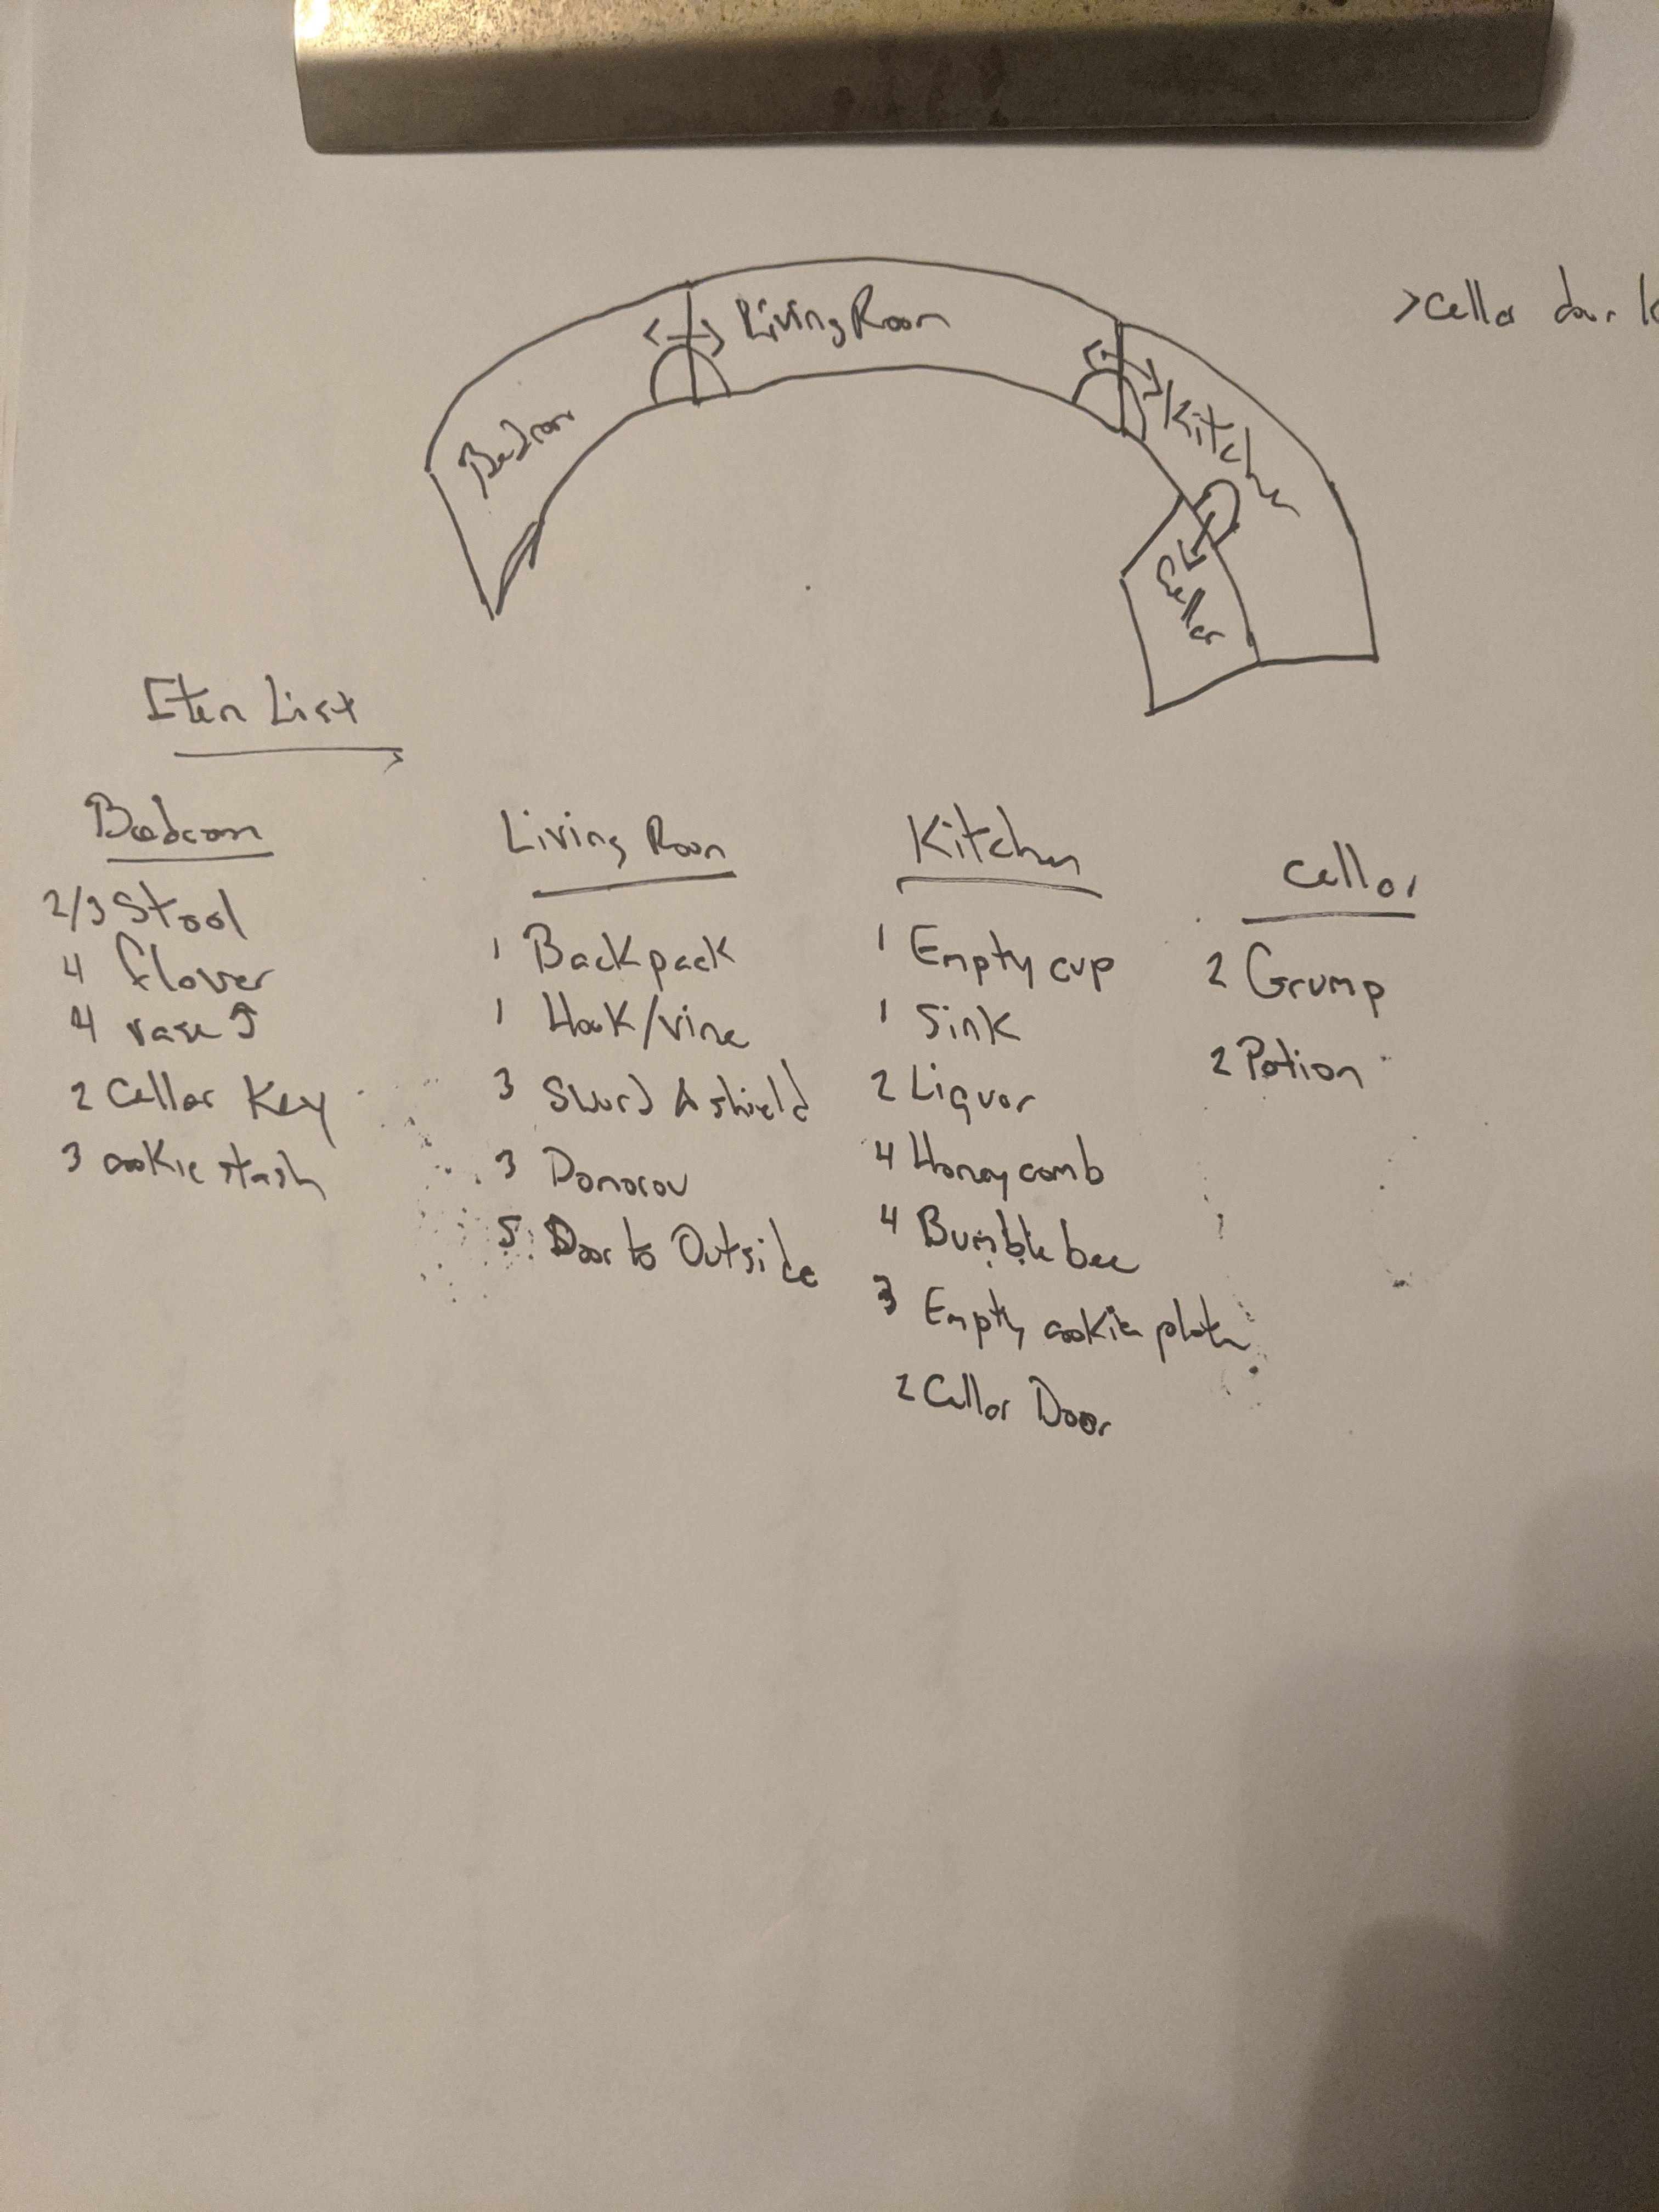 Living Room
>Cellar door
Bedroom
Kitchen
Cellar
Item List
Bedroom
2/3 Stool
4 flower
4 vase
2 Cellar Key
3 cookie stash
Living Room
1 Backpack
1 Hook/vine
3 Sword & shield
3 Donorov
5 Door to Outside
Kitchen
1 Empty cup
1 Sink
2 Liquor
4 Honeycomb
4 Bumble bee
3 Empty cookie plate
2 Cellar Door
Cellar
2 Grump
2 Potion